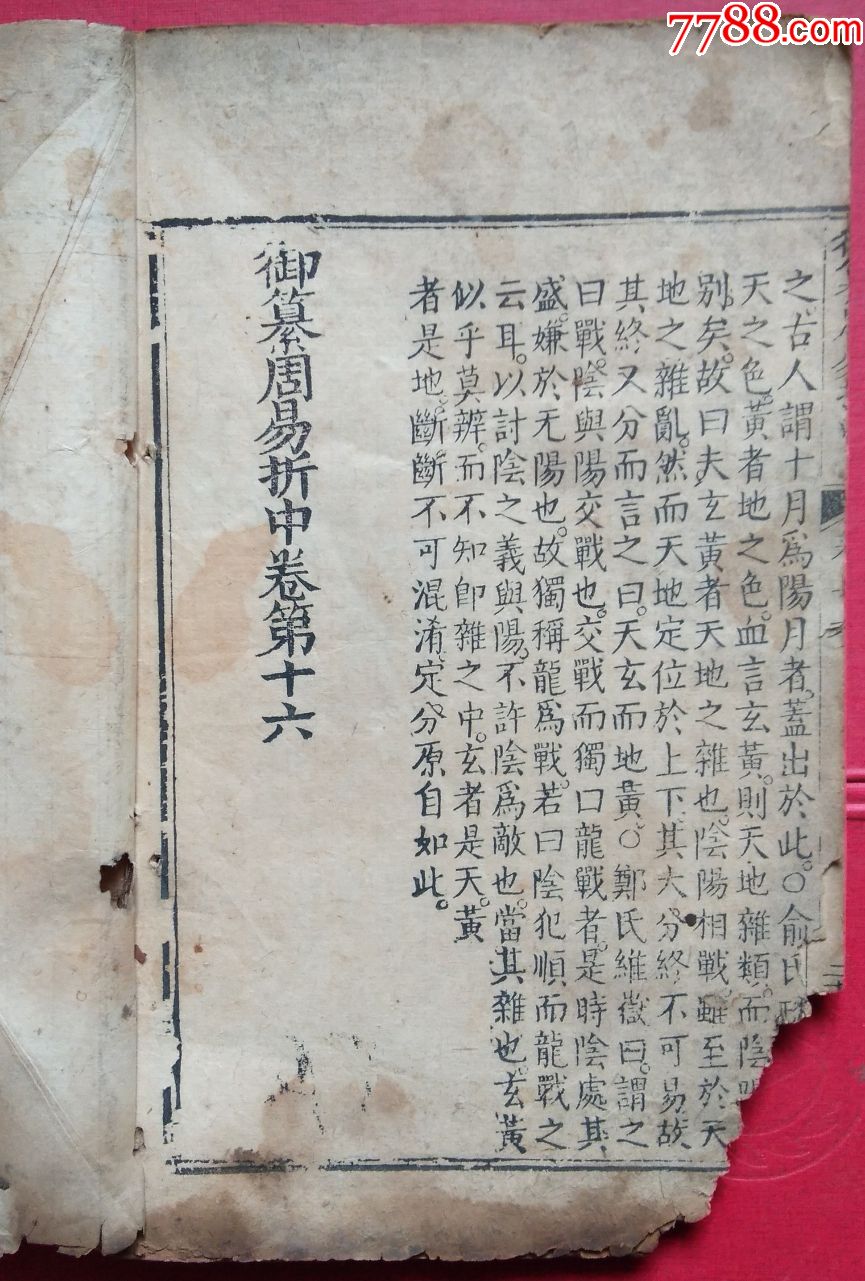 7788.com
之古人謂十月爲陽月者。蓋出於此。○俞氏
天之色。黃者地之色。血言玄黃。則天地雜類。而陰
別矣。故曰夫玄黃者天地之雜也。陰陽相戰。雖至於天
地之雜亂。然而天地定位於上下。其大分終不可易。故
其終又分而言之曰。天玄而地黃。○鄭氏維嶽曰。謂之
曰戰。陰與陽交戰也。交戰而獨口龍戰者。是時陰處其
盛。嫌於无陽也。故獨稱龍爲戰。若曰陰犯順而龍戰之
云耳。以討陰之義與陽。不許陰爲敵也。當其雜也。玄黃
似乎莫辨。而不知卽雜之中。玄者是天。黃
者是地。斷斷不可混淆。定分原自如此。
御纂周易折中卷第十六